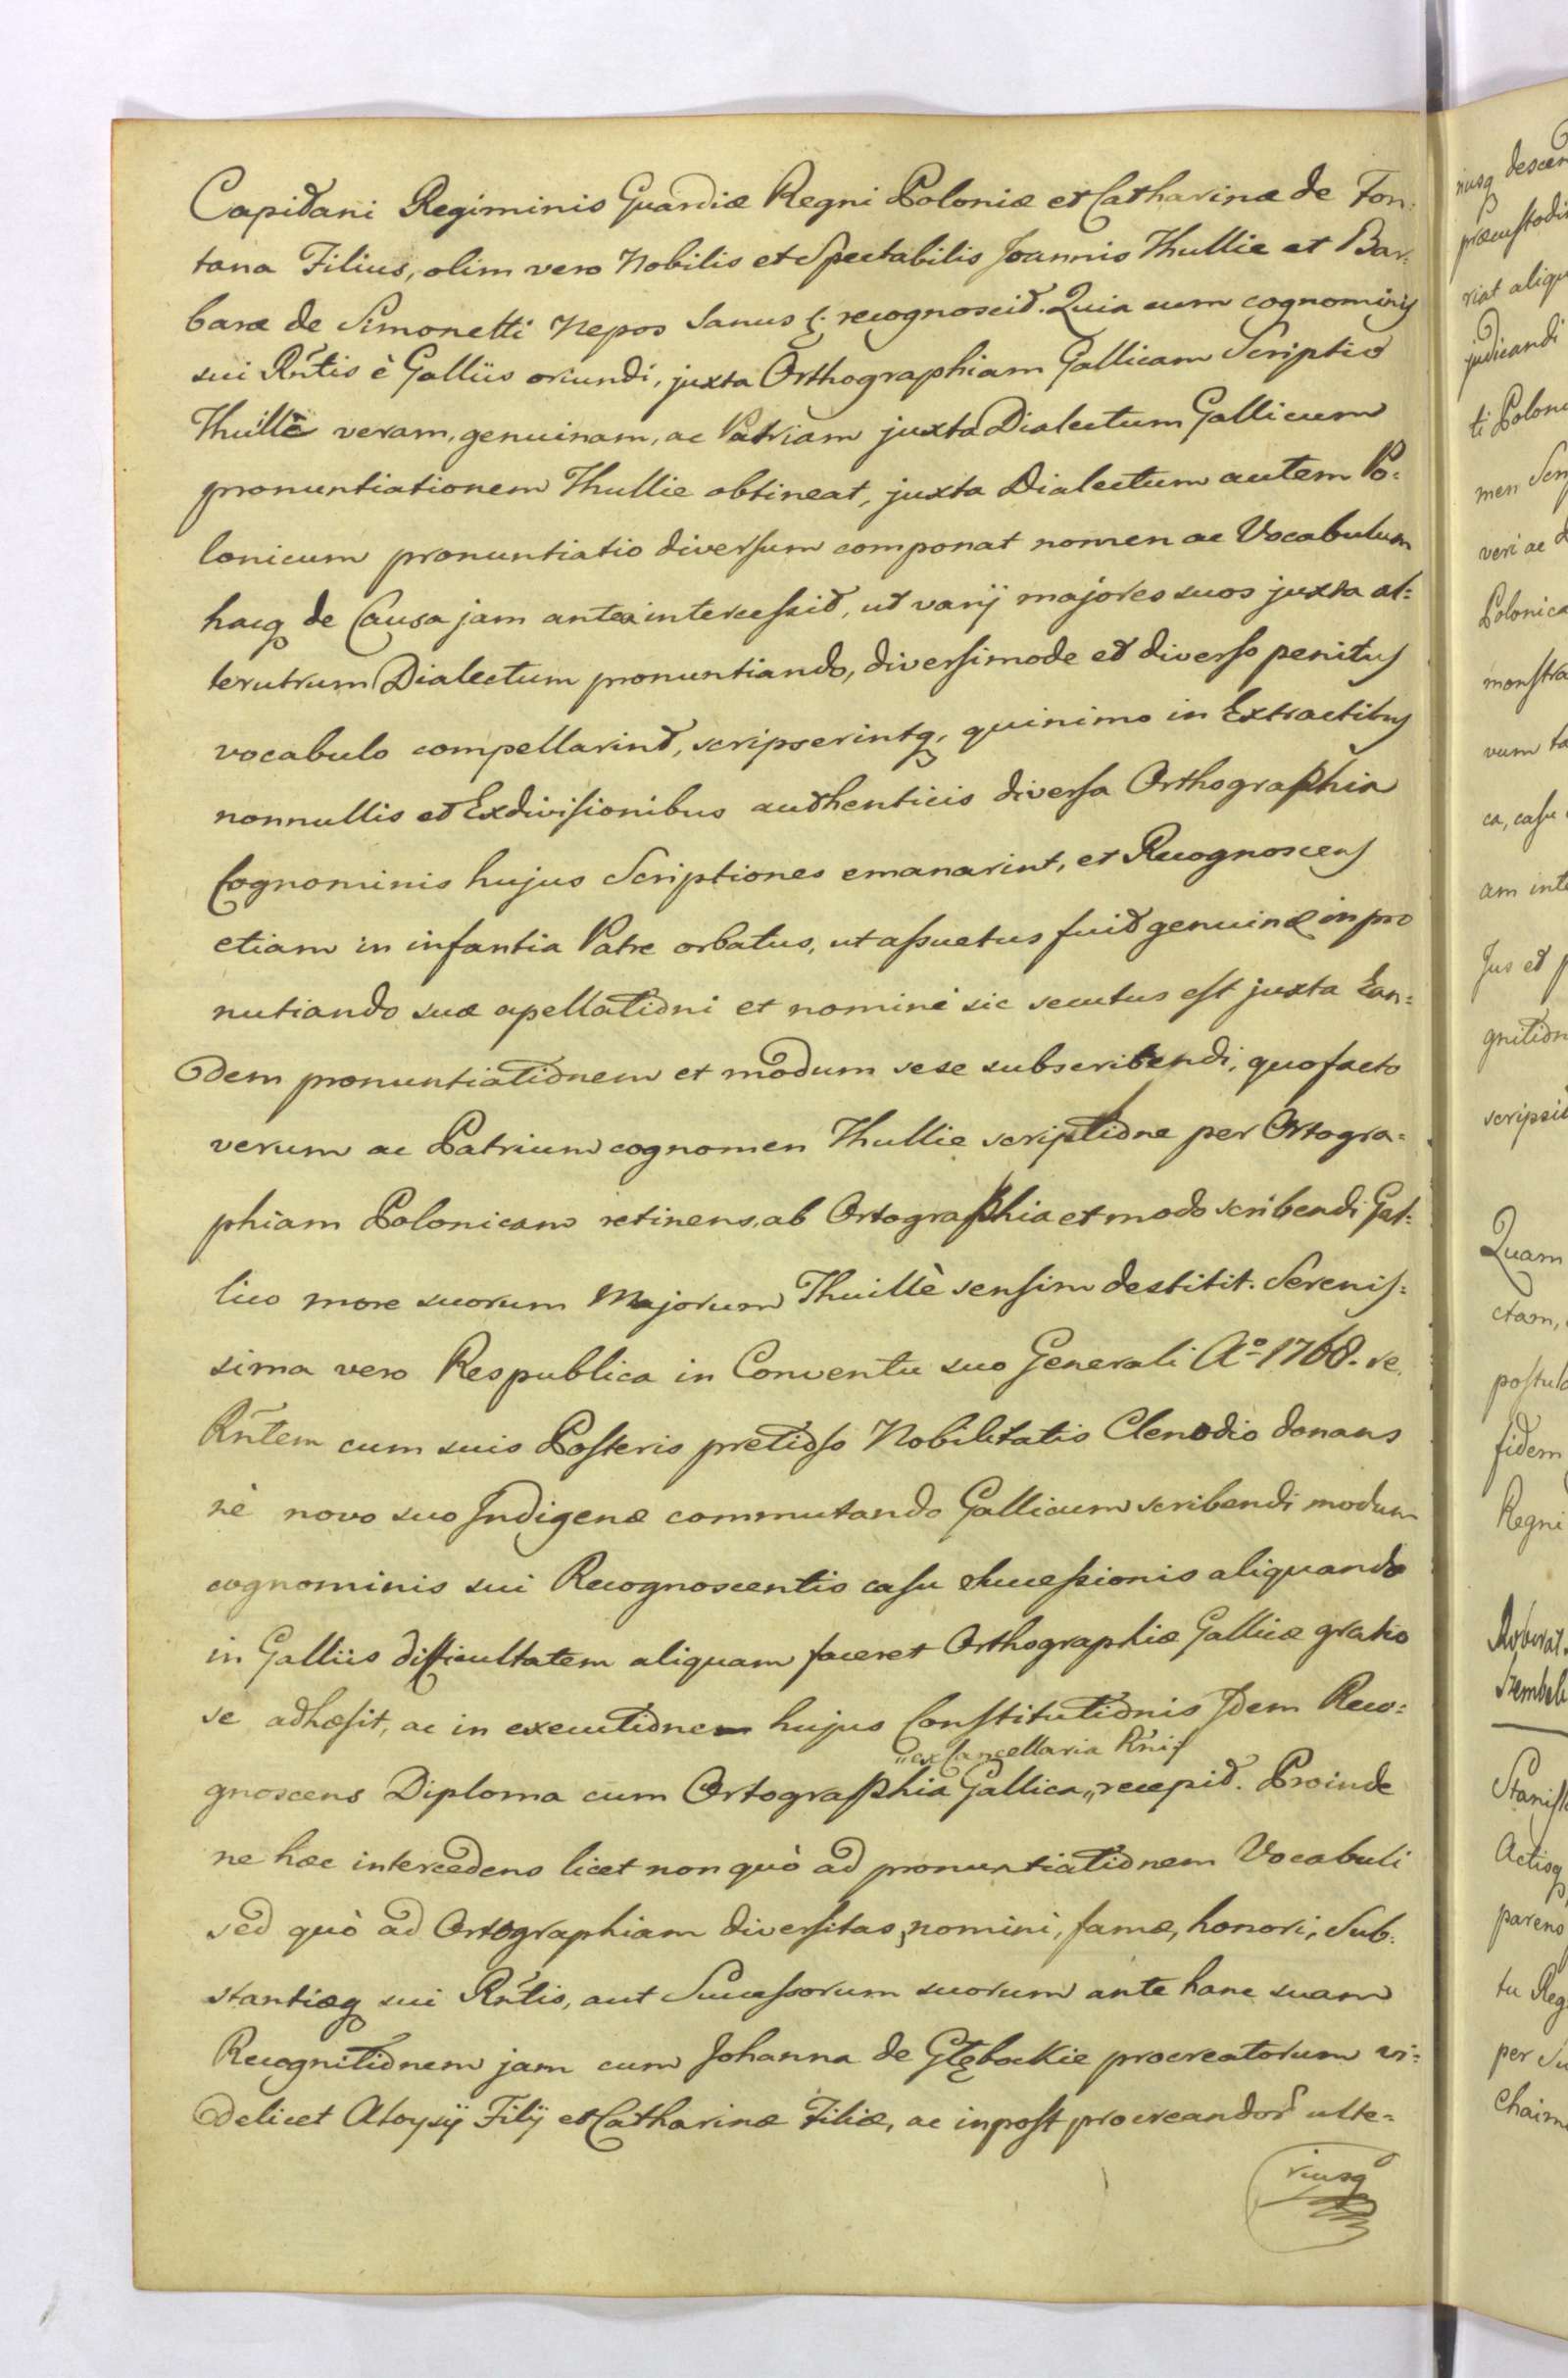 Capitani Regiminis Guardiæ Regni Poloniæ et Catharinæ de Fon-
tana Filius, olim vero Nobilis et Spectabilis Joannis Thullie et Bar-
baræ de Simonetti Nepos Sanus &. recognoscit. Quia cum cognominis
sui Rńtis è Galliis oriundi, juxta Orthographiam Gallicam Scriptio
Thuillè veram, genuinam, ac Patriam juxta Dialectum Gallicum
pronuntiationem Thullie obtineat, juxta Dialectum autem Po-
lonicum pronuntiatio diversum componat nomen ac Vocabulum
hacq de Causa jam antea intercessit, ut varij majores suos juxta al-
terutrum Dialectum pronuntiando, diversimode et diverso penitus
vocabulo compellarint, scripserintq, quinimo in Extractibus
nonnullis et Exdivisionibus authenticis diversa Orthographia
Cognominis hujus Scriptiones emanarint, et Recognoscens
etiam in infantia Patre orbatus, ut assuetus fuit genuinæ in pro
nutiando suæ apellationi et nomini sic secutus est juxta Ean-
dem pronuntiationem et modum sese subscribendi, quo facto
verum ac Patrium cognomen Thullie scriptione per Ortogra-
phiam Polonicam retinens, ab Ortographia et modo scribendi Gal-
lico more suorum Majorum Thuillè sensim destitit. Serenis-
sima vero Respublica in Conventu suo Generali Aº 1768. se
Rńtem cum suis Posteris pretioso Nobilitatis Clenodio donans
nè novo suo Indigenæ commutando Gallicum scribendi modum
cognominis sui Recognoscentis casu Successionis aliquando
in Galliis difficultatem aliquam faceret Orthographiæ Gallicæ gratio
se adhæsit, ac in executionem hujus Constitutionis Idem Reco-
„ex Cancellaria Rńi
gnoscens Diploma cum Ortographia Gallica „ recepit. Proinde
ne hæc intercedens licet non quò ad pronuntiationem Vocabuli
sed quò ad Ortographiam diversitas, nomini, famæ, honori, Sub-
stantiæq sui Rńtis, aut Successorum suorum ante hanc suam
Recognitionem jam cum Johanna de Głębockie procreatorum vi-
delicet Aloysij Filij et Catharinæ Filiæ, ac inpost procreandor ulte-
riusq